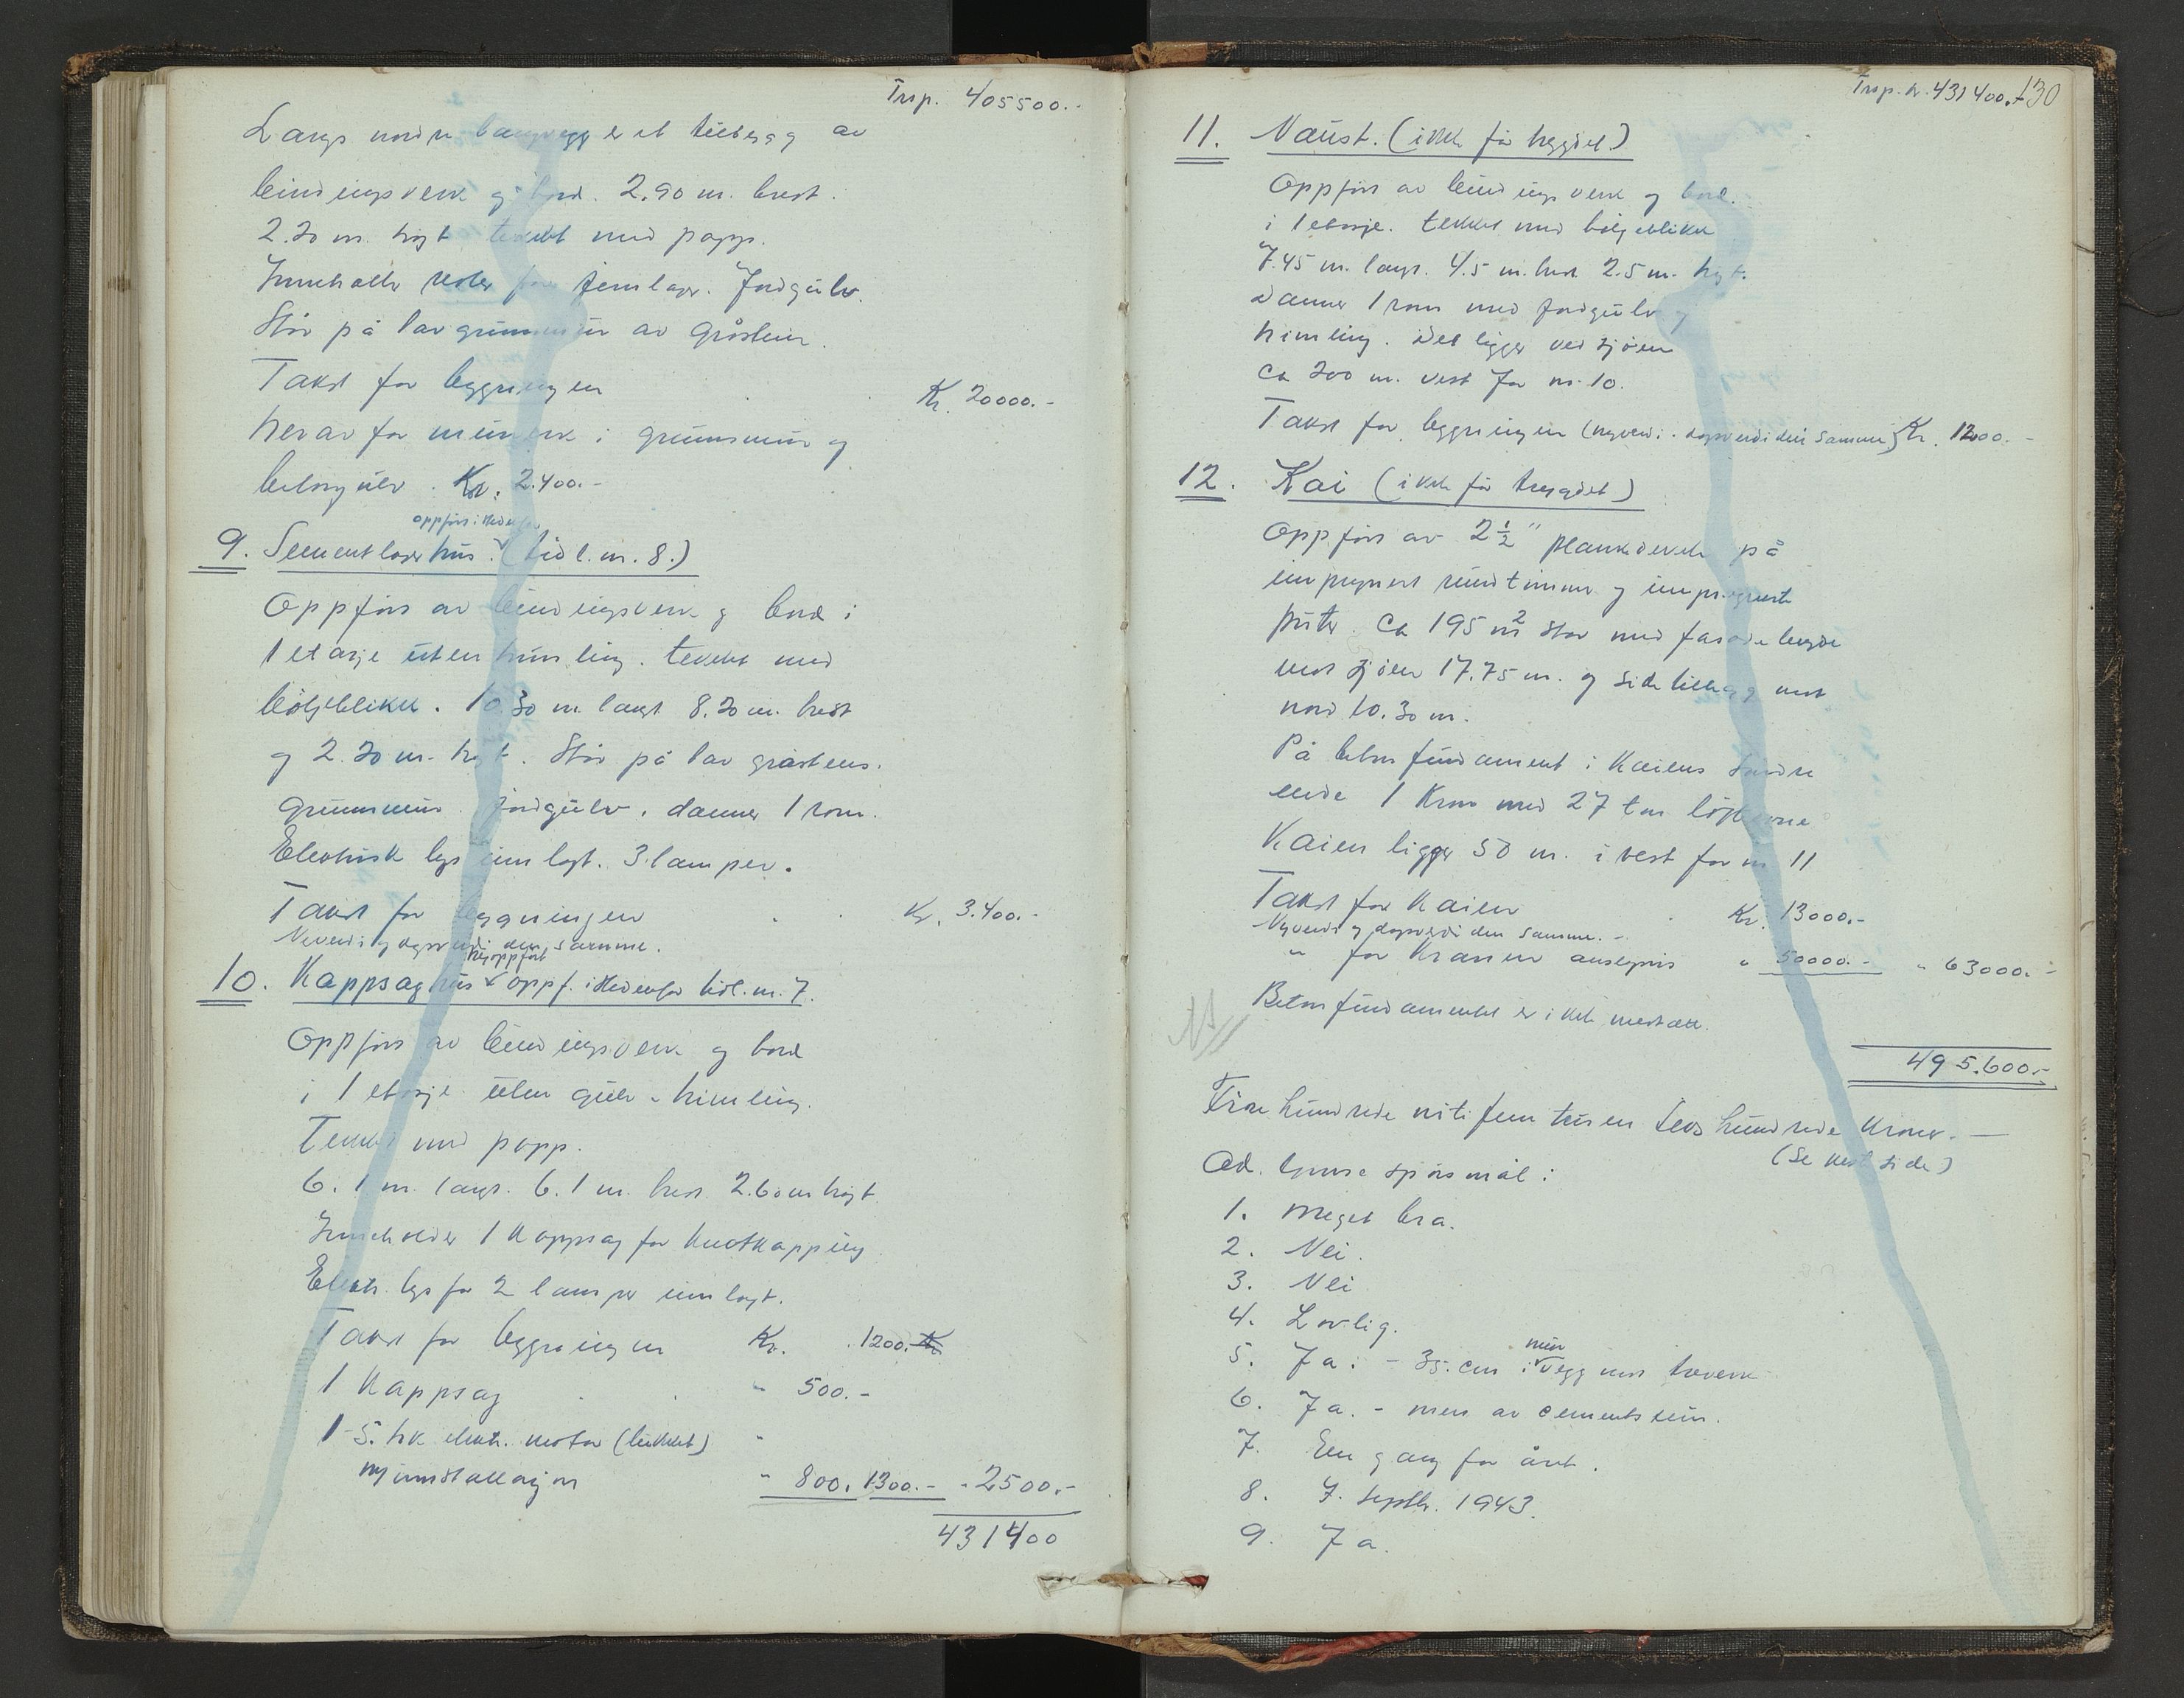 Trsp. 405500.-
Langs nordre langvegg er et tilbygg av
bindingsverk og bord. 2.90 m. bredt.
2.20 m. högt tekket med papp.
Inneholder reoler for jernlager. Jordgulv.
Står på lav grunnmur av gråstein.
Takst for bygningen Kr. 20000.-
herav for murverk i grunnmur og
betongulv. Kr. 2.400.-
oppfört i Hedenfor
9. Sementlagerhus. (tidl. nr. 8.)
Oppfört av bindingsverk og bord i
1 etasje uten himling. tekket med
bölgeblikk. 10.30 m. langt 8.20 m. bredt
og 2.20 m. högt. Står på lav gråstens.
grunnmur. jordgulv. danner 1 rom.
Elektrisk lys innlagt. 3 lamper.
Takst for bygningen Kr. 3.400.-
Nyverdi og dagsverdi den samme.
nyoppfört
10. Kappsaghus oppf. i Hedenfor tidl. nr. 7.
Oppfört av bindingsverk og bord
i 1 etasje uten gulv - himling.
Tekket med papp.
6.1 m. langt. 6.1 m. bredt. 2.60 m högt
Inneholder 1 kappsag for kvistkapping
Elektr. lys for 2 lamper innlagt.
Takst for bygningen Kr. 1200.-
1 Kappsag " 500.-
1 - 5. hk elektr. motor (lukket) "
m/ innstallasjon " 800. 1300.- - 2500.-
431400
Trsp. kr. 431400.- 130
11. Naust. (ikke för trygdet.)
Oppfört av bindingsverk og bord.
i 1 etasje. tekket med bölgeblikk
7.45 m. langt. 4.5 m. bredt 2.5 m. högt.
danner 1 rom med jordgulv og
himling. Det ligger ved sjöen
ca 200 m. vest for nr. 10.
Takst for bygningen (nyverdi - dagsverdi den samme) Kr. 1200.-
12. Kai (ikke för trygdet)
Oppfört av 2 1/2" plankedekke på
impregnert rundtimmer og impregnerte
puter. Ca 195 m2 stor med fasadelengde
mot sjöen 17.75 m. og sidetillegg mot
nord 10.30 m.
På betonfundament i Kaiens söndre
ende 1 Kran med 27 ton löfteevne
Kaien ligger 50 m. i vest for nr 11
Takst for Kaien Kr. 13000.-
Nyverdi og dagsverdi den samme.-
" for Kranen anslagsvis " 50000.- " 63000.-
Betonfundamentet er ikke medtatt.
495.600.-
Fire hundrede nitifem tusen seks hundrede Kroner.-
(Se nest side)
Ad. spörsmål:
1. Meget bra.
2. Nei.
3. Nei
4. Lovlig.
mur
5. Ja. - 35. cm i vegg mot treverk
6. Ja. - men av cementstein.
7. En gang for året.
8. 7. septbr. 1943.
9. Ja.